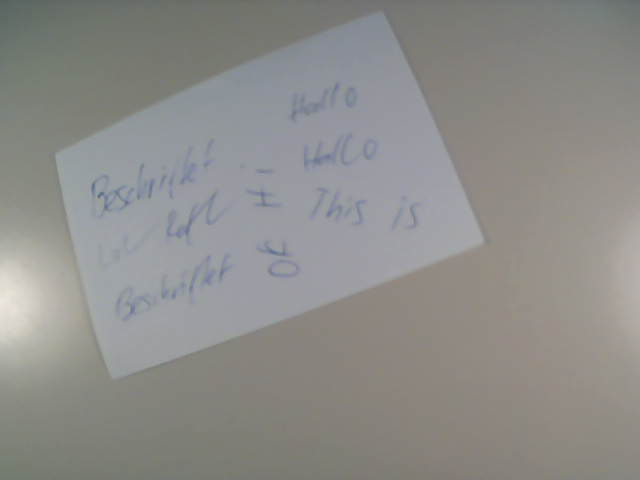 Hallo
Beschriftet Hallo
Lol Rofl HI This is
Beschriftet